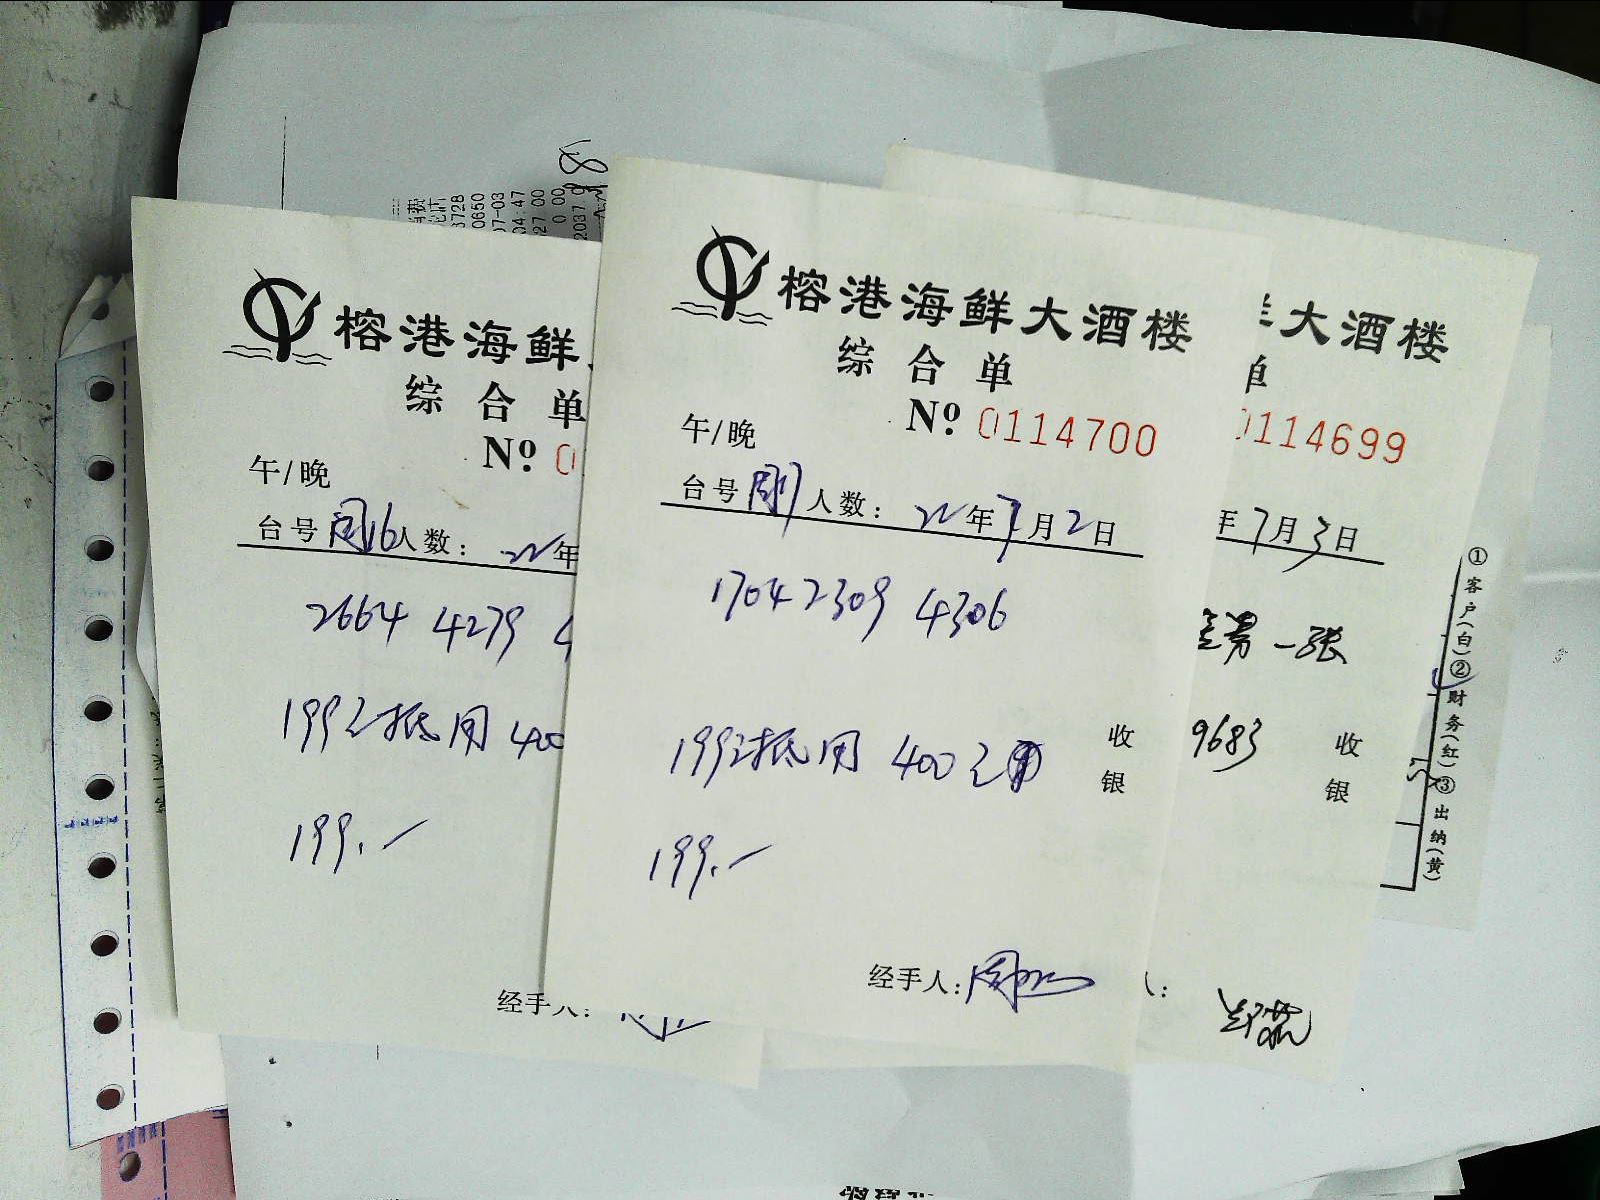 榕港海鲜
综合单
No. 0
午/晚
台号 周16 人数: 22年
2664 4279
199元抵用 400
199.一
经手人:
榕港海鲜大酒楼
综合单
No. 0114700
午/晚
台号 人数: 22年7月2日
1704 2309 4306
199元抵用 400元
收
银
199.一
经手人:
大酒楼
单
0114699
年7月3日
一张
9683
收
银
①客户(白)②财务(红)③出纳(黄)
3728
0650
07-03
04:47
27 00
0 00
2037 0